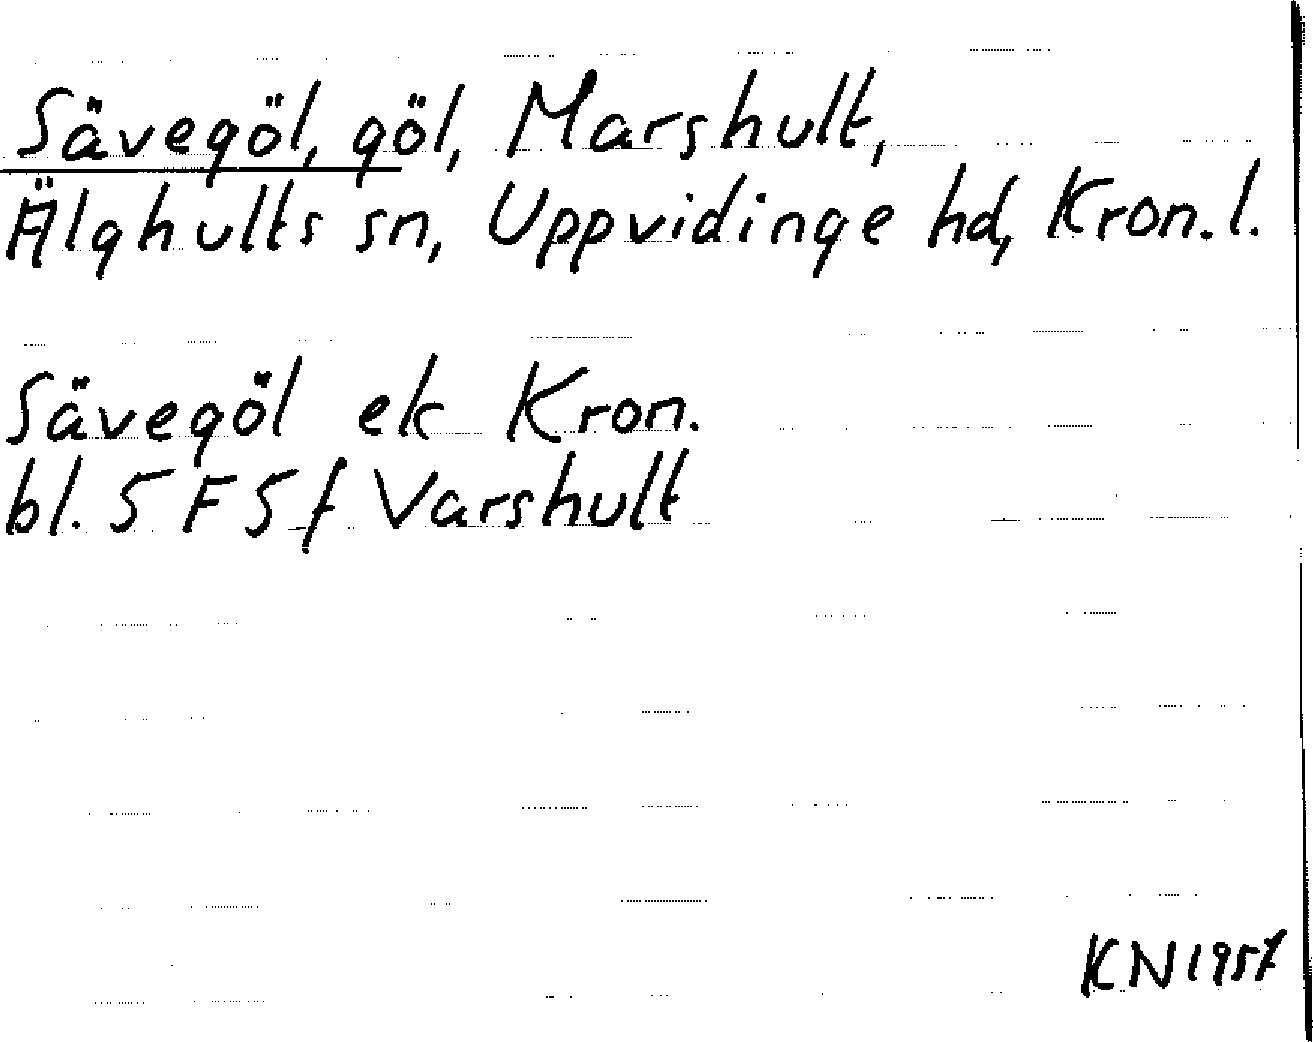 Sävegöl, göl, Marshult,
Älghults sn, Uppvidinge hd, Kron. l.
Sävegöl ek Kron.
bl. 5 F 5 f Varshult
KN 1957